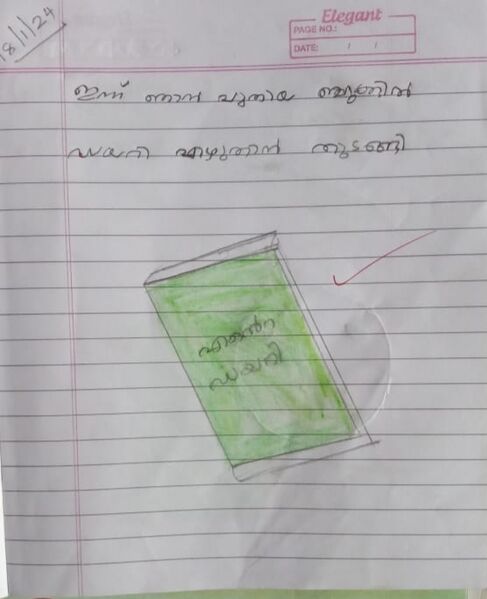 18/1/24
Elegant
PAGE NO.:
DATE: / /
ഇന്ന് ഞാൻ പുതിയ ബുക്കിൽ
ഡയറി എഴുതാൻ തുടങ്ങി
എൻ്റെ
ഡയറി